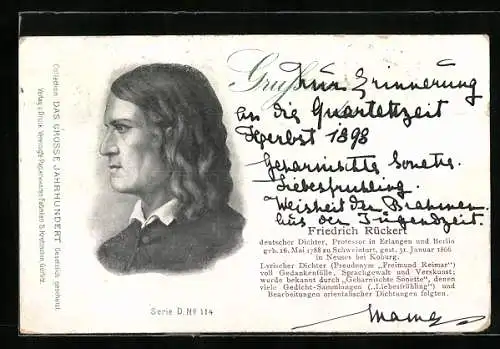 Gruß
Zur Erinnerung
an die Quartettzeit
Herbst 1898
Geharnischte Sonette.
Liebesfrühling.
Weisheit des Brahmanen.
Aus der Jugendzeit.
Friedrich Rückert
deutscher Dichter, Professor in Erlangen und Berlin
geb. 16. Mai 1788 zu Schweinfurt, gest. 31. Januar 1866
in Neuses bei Koburg.
Lyrischer Dichter (Pseudonym „Freimund Reimar")
voll Gedankenfülle, Sprachgewalt und Verskunst;
wurde bekannt durch „Geharnischte Sonette", denen
viele Gedicht-Sammlungen („Liebesfrühling") und
Bearbeitungen orientalischer Dichtungen folgten.
Collection DAS GROSSE JAHRHUNDERT Gesetzlich geschützt.
Verlag u. Druck: Vereinigte
Serie D. No 114